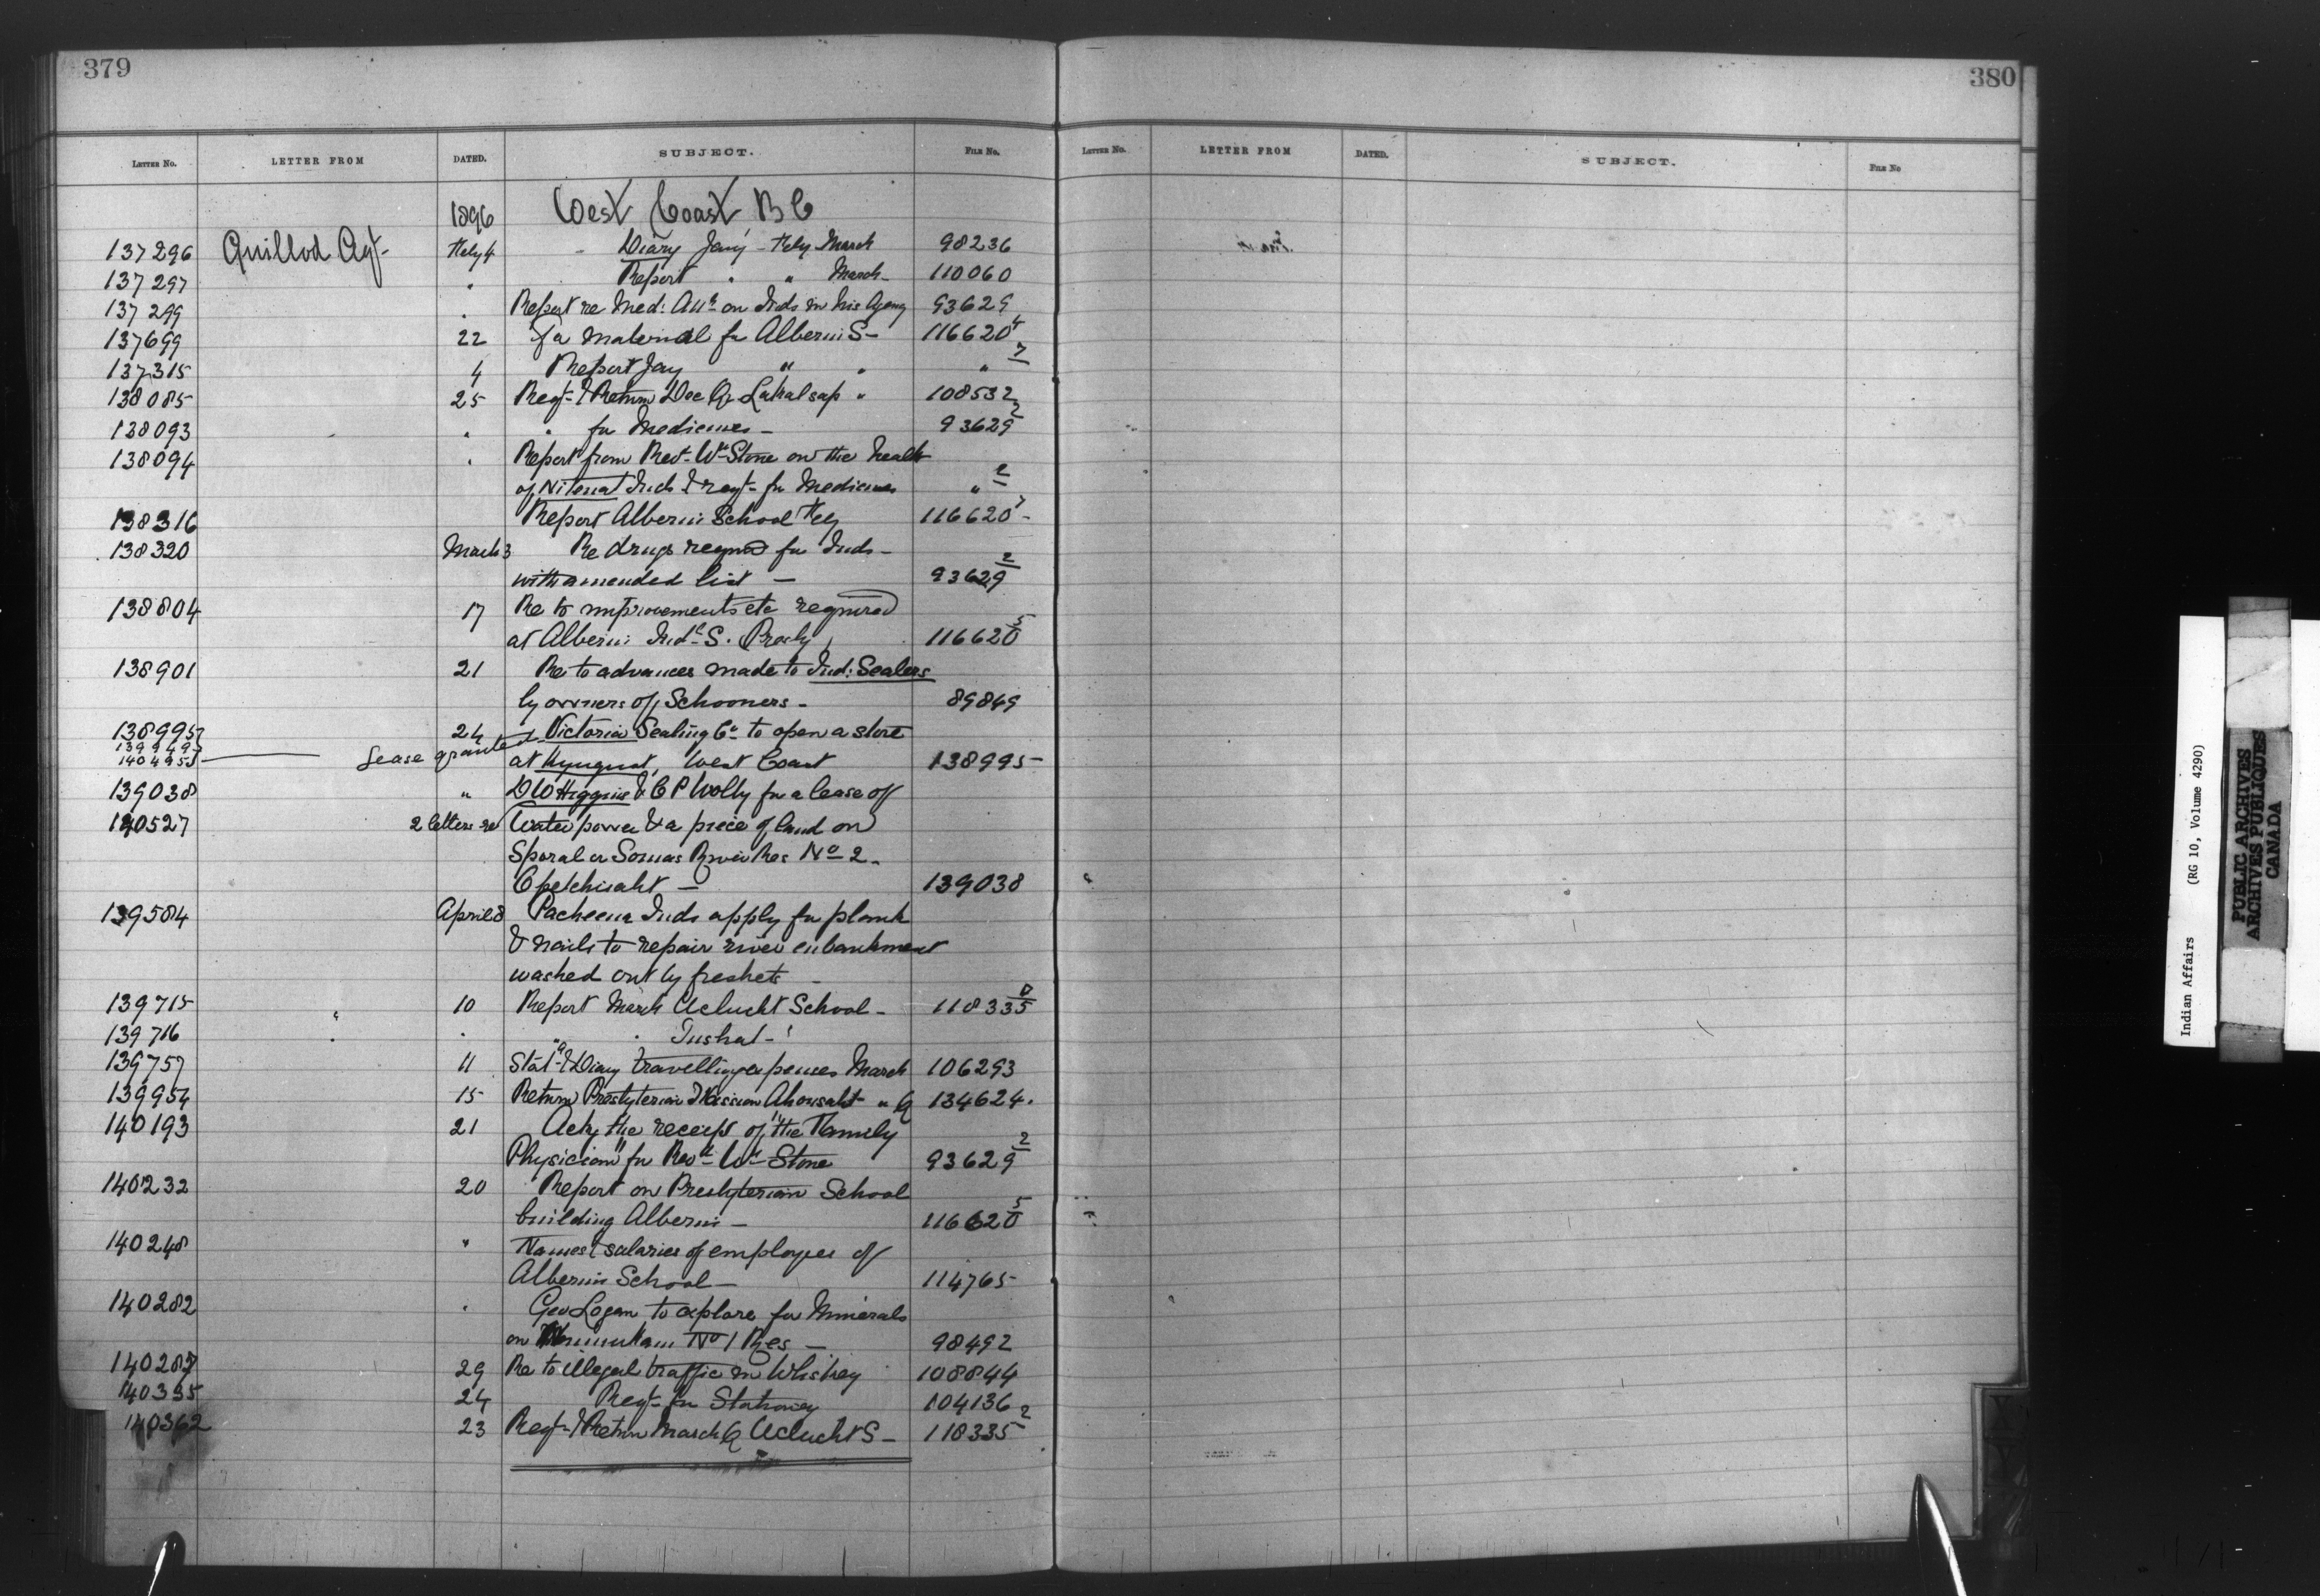 379
380
LETTER No. LETTER FROM DATED. SUBJECT. FILE No.
LETTER No. LETTER FROM DATED. SUBJECT. FILE No
1896 West Coast B C
137296 Guillod Agt- Feby 4 Diary Jany - Feby March 98236
137297 " Report " " March - 110060
137299 " Report re Med: Att on Inds in his Agency 93629
137699 22 for material for Alberni S- 116620 4
137315 4 Report Jany " " " 7
138085 25 Reqt- & Return Dec Qr Lakalsap " 108532
138093 " " for Medicines - 93629 2
138094 " Report from Revt- Wm Stone on the health
of Nitenat Inds & reqt- for Medicines " 2
138316 Report Alberni School Feby 116620 7 -
138320 March 3 Re drugs reqmd for Inds -
with amended list - 93629 2
138804 17 Re to improvements etc required
at Alberni Indl S. Presby 116620 5
138901 21 Re to advances made to Ind: Sealers
by owners of Schooners - 89849
138995 24 Victoria Sealing Co to open a store
139949
140495 Lease granted at Kyuquot, West Coast 138995-
139038 " D W Higgins & C P Wolly for a lease of
140527 2 letters re Water power & a piece of land on
Sporal or Somas River Res No 2 -
Opetchisaht - 139038
139584 April 8 Pacheena Inds apply for plank
& nails to repair river enbankment
washed out by freshets -
139715 " 10 Report March Uclucht School - 118335 8
139716 " " " " Tushat - '
139757 11 Stat & Diary travelling expenses March 106293
139954 15 Return Presbyterian Mission Ahousaht " Q 134624.
140193 21 Ackg the receipt of "the Family
Physician" for Revd- Wm Stone 93629 2
140232 20 Report on Presbyterian School
building Alberni - 116620 5
140248 " Names & salaries of employees of
Alberni School - 114765-
140282 " Geo Logan to explore for Minerals
on No 1 Res - 98492
140287 29 Re to illegal traffic in Whiskey 108844
140335 24 Reqt- for Stationery 104136
140362 23 Reqt- & Return March Q Uclucht S - 118335 2
Indian Affairs (RG 10, Volume 4290)
PUBLIC ARCHIVES
ARCHIVES PUBLIQUES
CANADA